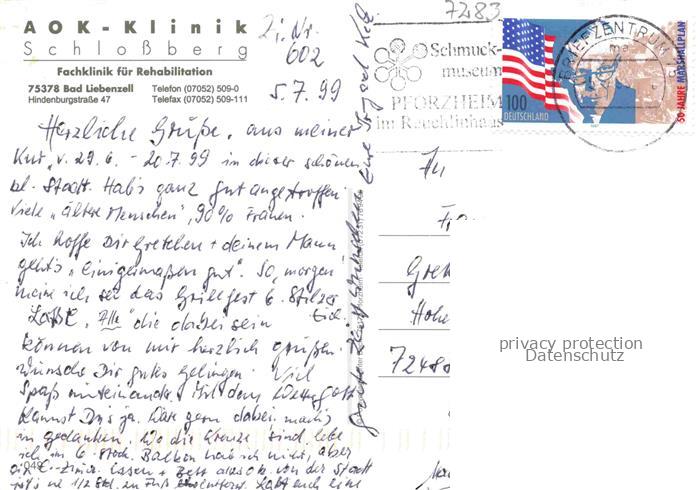 AOK-Klinik
Schloßberg
Fachklinik für Rehabilitation
75378 Bad Liebenzell Telefon (07052) 509-0
Hindenburgstraße 47 Telefax (07052) 509-111
Zi. Nr.
602
5.7.99
Herzliche Grüße, aus meiner
Kur, v. 29.6. - 20.7.99 in dieser schönen
kl. Stadt. Hab's ganz gut angetroffen
viele "ältere Menschen", 90% Frauen.
Ich hoffe Dir Gretchen + deinem Mann
geht's "einigermaßen gut". So, morgen
meine ich sei das Grillfest b.
Laßt, "Alle" die dabei sein
können von mir herzlich grüßen.
Wünsche Dir gutes gelingen. Viel
Spaß miteinander. Mit dem Wettergott
kannst Du's ja. Wäre gern dabei
in gedanken. Wo die Grenze sind, lebe
ich im 6. Stock. Balkon hab ich nicht, aber
Essen + Bett alles ok. von der Stadt
1/2 Std. zu Fuß entfernt. Laßt euch eine
gute Zeit wünschen
7283
Schmuck-
museum
PFORZHEIM
im Reuchlinhaus
BRIEFZENTRUM 75
100
DEUTSCHLAND
50 JAHRE MARSHALLPLAN
An
Gret
Hohe
7248
privacy protection
Datenschutz